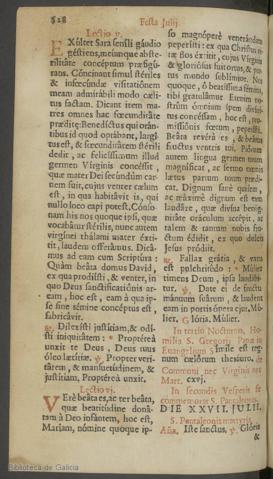 528
Festa Julij.
Lectio v.
EXúltet Sara senili gáudio
géstiens, meiúmque abste-
rilitáte concéptum præfigú-
rans. Cóncinant simul stériles
& infœcúndæ visitatiónem
meam admirábili modo cæli-
tus factam. Dicant item ma-
tres omnes hac fœcunditáte
præditæ: Benedíctus qui orán-
tibus id quod optábant, largí-
tus est, & fœcunditátem stérili
dedit, ac felicíssimum illud
germen Vírginis concéssit
quæ mater Dei secúndùm car-
nem fuit, cujus venter cælum
est, in qua habitávit is, qui
nullo loco capi potest. Consó-
nam his nos quoque ipsi, quæ
vocabátur stérilis, nunc autem
virgínei thálami mater éxti-
tit, laudem offerámus. Dicá-
mus ad eam cum Scriptúra:
Quàm beáta domus David,
ex qua prodísti, & venter, in
quo Deus sanctificatiónis ar-
cam, hoc est, eam à qua ip-
se sine sémine concéptus est,
fabricávit.
℟. Dilexísti justítiam, & odí-
sti iniquitátem: * Proptéreà
unxit te Deus, Deus tuus
óleo lætítiæ. ℣. Propter veri-
tátem, & mansuetúdinem, &
justítiam. Proptéreà unxit.
Lectio vj.
VErè beáta es, ac ter beáta,
quæ beatitúdine doná-
tam à Deo infántem, hoc est,
Maríam, nómine quoque ip-
so magnóperè venerándam
peperísti: ex qua Christus
flos éxitit, cujus Vírginis
& gloriósus fuit ortus, & par-
tus mundo sublímior. Nos
quoque, ô beatíssima fémina,
tibi gratulámur. Etenim no-
strûm ómnium spem divíni-
tus concéssam, hoc est, pro-
missiónis fœtum, peperísti.
Beáta reverà es, & beátus
fructus ventris tui. Piórum
autem lingua germen tuum
magníficat, ac lætus omnis
partum tuum prædi-
cat. Dignum sanè quidem,
ac máximè dignum est eam
laudáre, quæ divínæ benig-
nitátis oráculum accépit, ac
talem & tantum nobis fru-
ctum édidit, ex quo dulcis
Jesus pródiit.
℟. Fallax grátia, & vana
est pulchritúdo: * Múlier
timens Dóminum, ipsa laudábi-
tur. ℣. Date ei de fructu
mánuum suárum, & laudent
eam in portis ópera ejus. Mú-
lier. Glória. Múlier.
In tertio Nocturno, Ho-
milia S. Gregorij Papæ in
Evangelium Símile est reg-
num cælórum thesáuro, de
Communi nec Virginis nec
Mart. cxvj.
In secundis Vesperis fit
commemoratio S. Pantaleonis.
DIE XXVII. JULII,
S. Pantaleonis martyris.
Aña. Iste sanctus. ℣. Glória
&
Biblioteca de Galicia